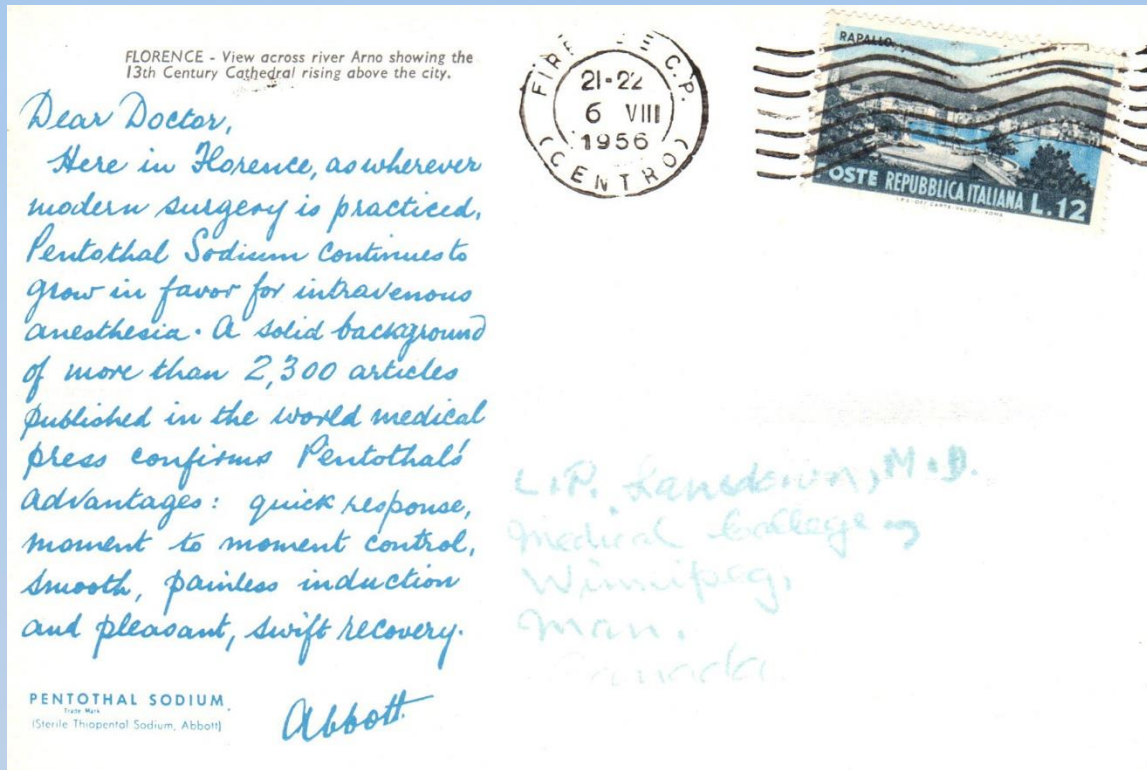 FLORENCE - View across river Arno showing the
13th Century Cathedral rising above the city.
Dear Doctor,
Here in Florence, as wherever
modern surgery is practiced,
Pentothal Sodium continues to
grow in favor for intravenous
anesthesia. A solid background
of more than 2,300 articles
published in the world medical
press confirms Pentothal's
advantages: quick response,
moment to moment control,
smooth, painless induction
and pleasant, swift recovery.
Abbott
PENTOTHAL SODIUM
Trade Mark
(Sterile Thiopental Sodium, Abbott)
C.P.
21-22
6 VIII
1956
(CENTRO)
RAPALLO
POSTE REPUBBLICA ITALIANA L.12
L.P. Lansdown, M.D.
Medical College
Winnipeg,
Man.
Canada